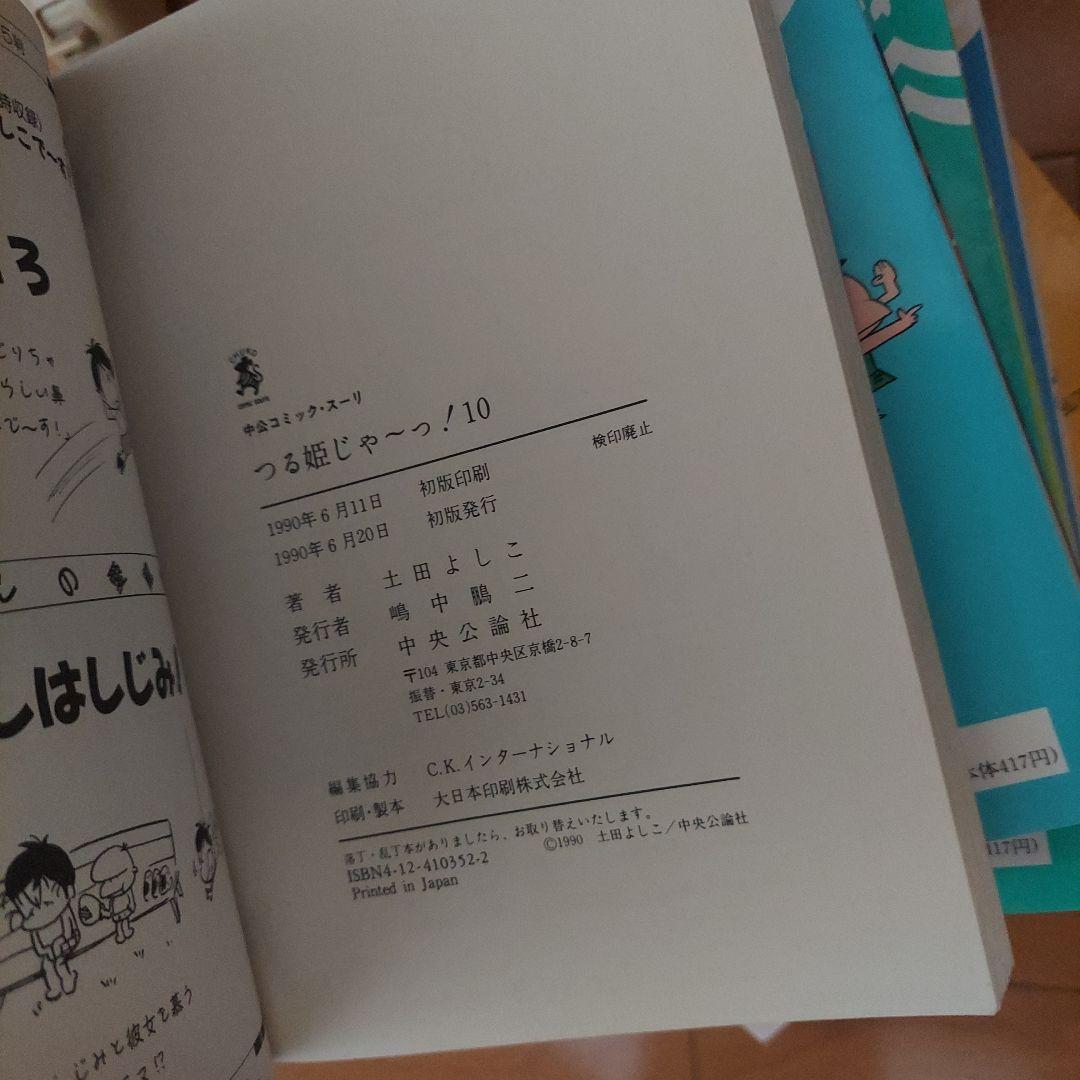 中公コミック・スーリ
つる姫じゃ〜っ！10
検印廃止
1990年6月11日 初版印刷
1990年6月20日 初版発行
著者 土田よしこ
発行者 嶋中鵬二
発行所 中央公論社
〒104 東京都中央区京橋2-8-7
振替・東京2-34
TEL(03)563-1431
編集協力 C.K.インターナショナル
印刷・製本 大日本印刷株式会社
落丁・乱丁本がありましたら、お取り替えいたします。
©1990 土田よしこ／中央公論社
ISBN4-12-410352-2
Printed in Japan
収録)
しこで〜す
ろ
りちゃ
らしい鼻
で〜す!」
の
しはしじみ!
じみと彼女を慕う
!?
体417円)
417円)